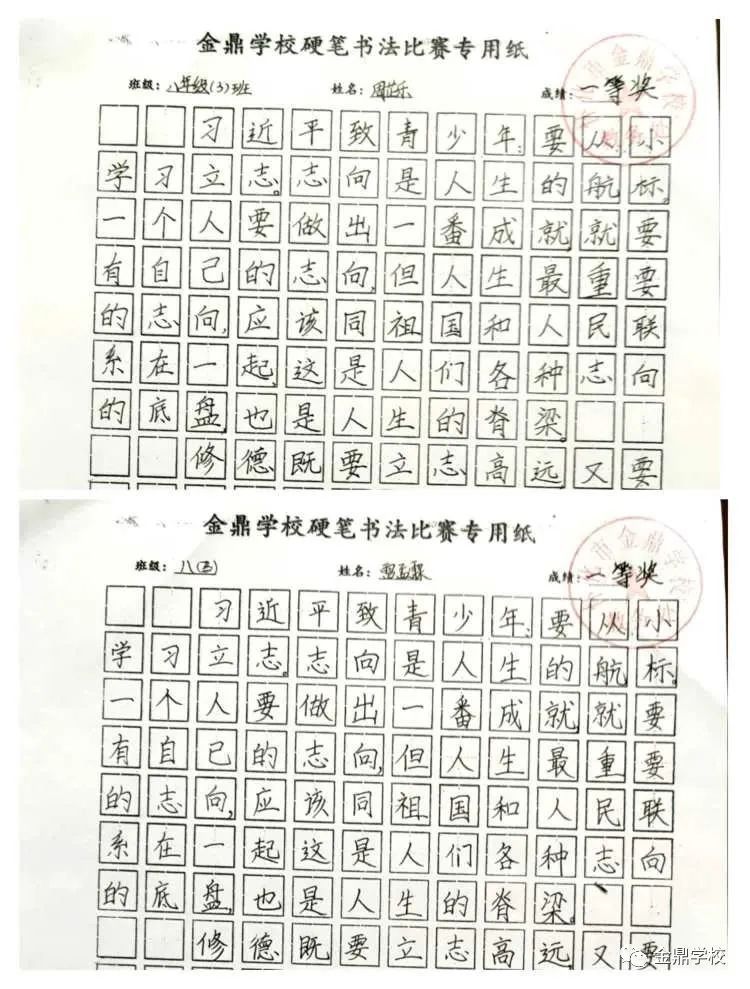 金鼎学校硬笔书法比赛专用纸
班级：八年级(3)班 姓名：周芷乐 成绩：一等奖
习近平致青少年：要从小
学习立志。志向是人生的航标。
一个人要做出一番成就，就要
有自己的志向，但人生最重要
的志向，应该同祖国和人民联
系在一起，这是人们各种志向
的底盘，也是人生的脊梁。
修德既要立志高远，又要
金鼎学校硬笔书法比赛专用纸
班级：八(三) 姓名： 成绩：一等奖
习近平致青少年：要从小
学习立志。志向是人生的航标。
一个人要做出一番成就，就要
有自己的志向，但人生最重要
的志向，应该同祖国和人民联
系在一起这是人们各种志向
的底盘，也是人生的脊梁。
修德既要立志高远，又要
金鼎学校